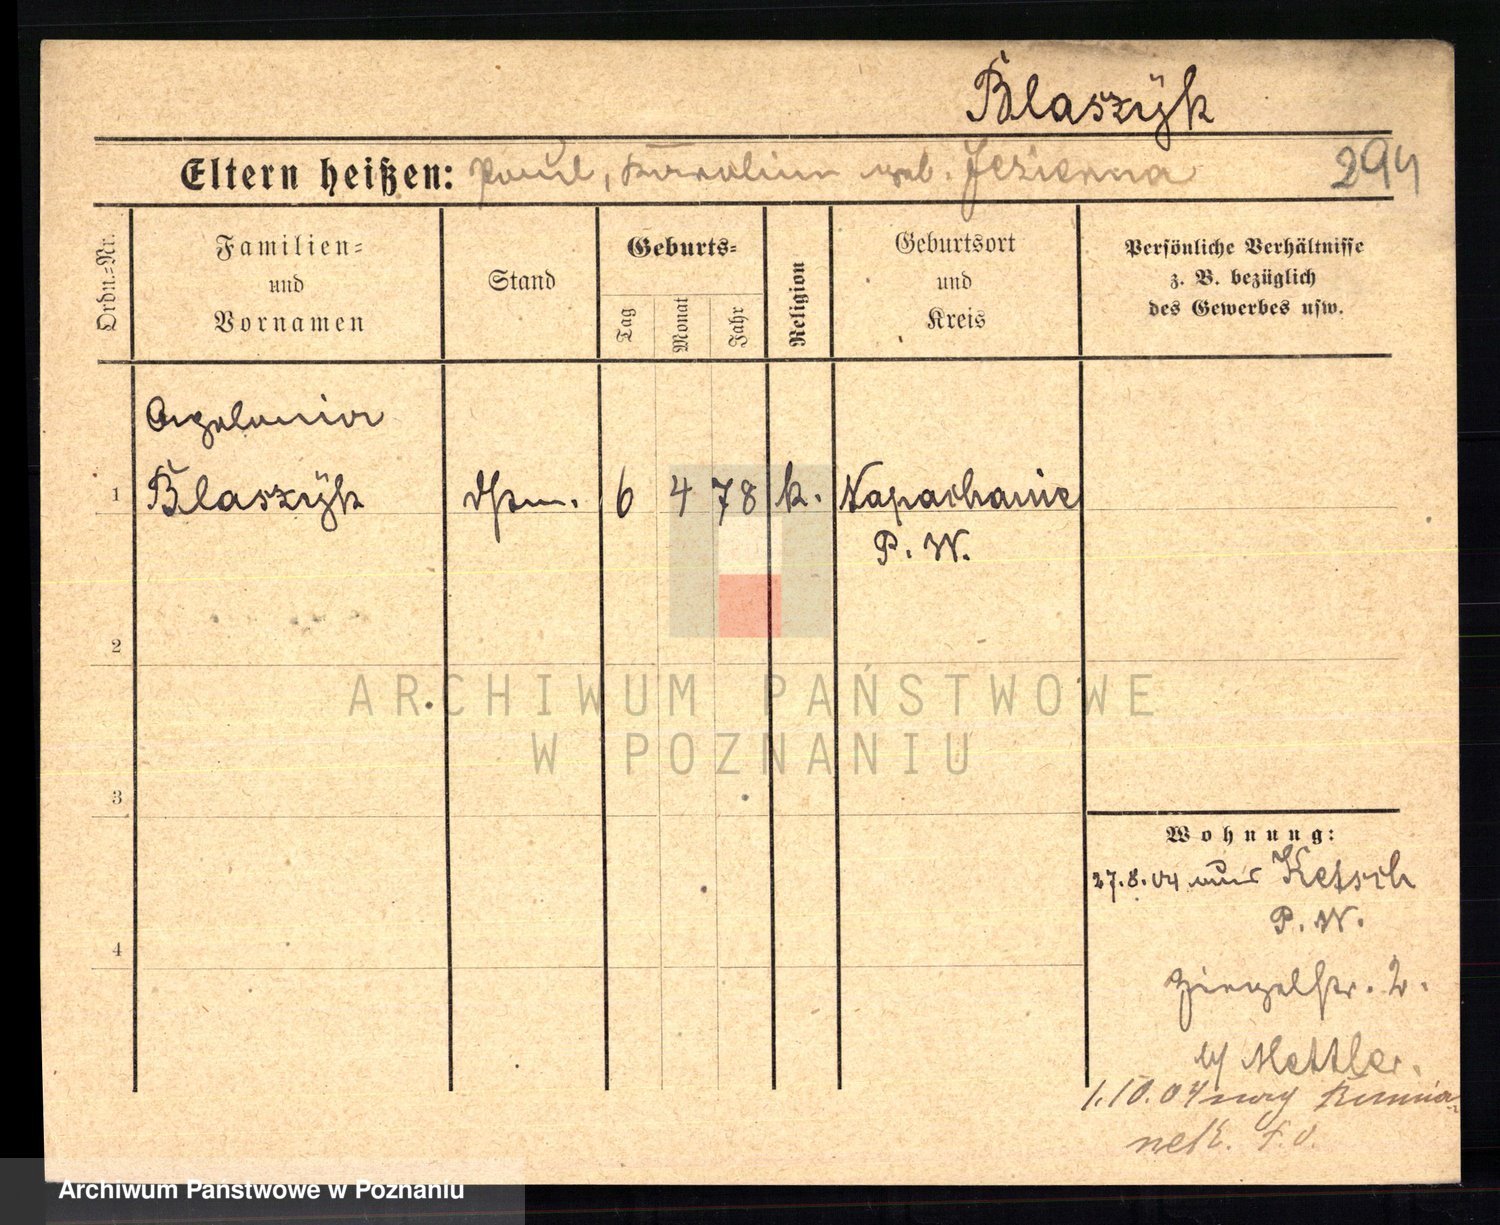 Blaszÿk
Eltern heißen: Paul, Karolina geb. Jezierna
294
Ordn.-Nr.
Familien-
und
Vornamen
Stand
Geburts-
Tag
Monat
Jahr
Religion
Geburtsort
und
Kreis
Persönliche Verhältnisse
z. B. bezüglich
des Gewerbes usw.
Apolonia
1 Blaszÿk 6 4 78 k. Napachanie
P. W.
2
3
4
Wohnung:
27.8.04 aus Ketsch
P. W.
Ziegelstr. 2.
b/ Mettler.
1.10.04 nach
ARCHIWUM PAŃSTWOWE
W POZNANIU
Archiwum Państwowe w Poznaniu